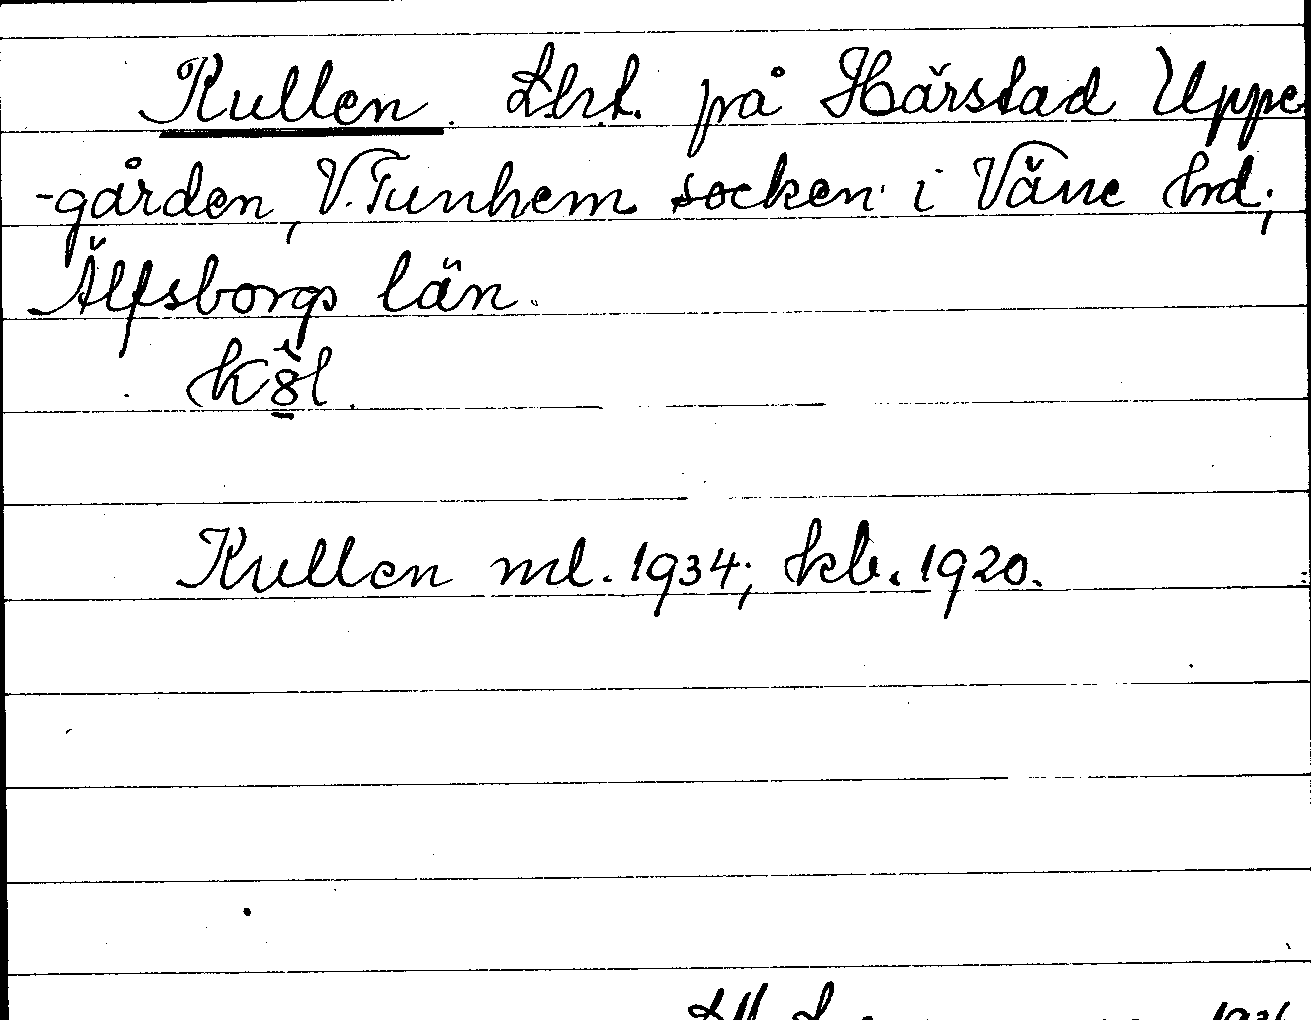 Kullen. Lht. på Härstad Uppe
-gården, V. Tunhem socken i Väne hd;
Älfsborgs län.
Kullen ml. 1934; kb. 1920.